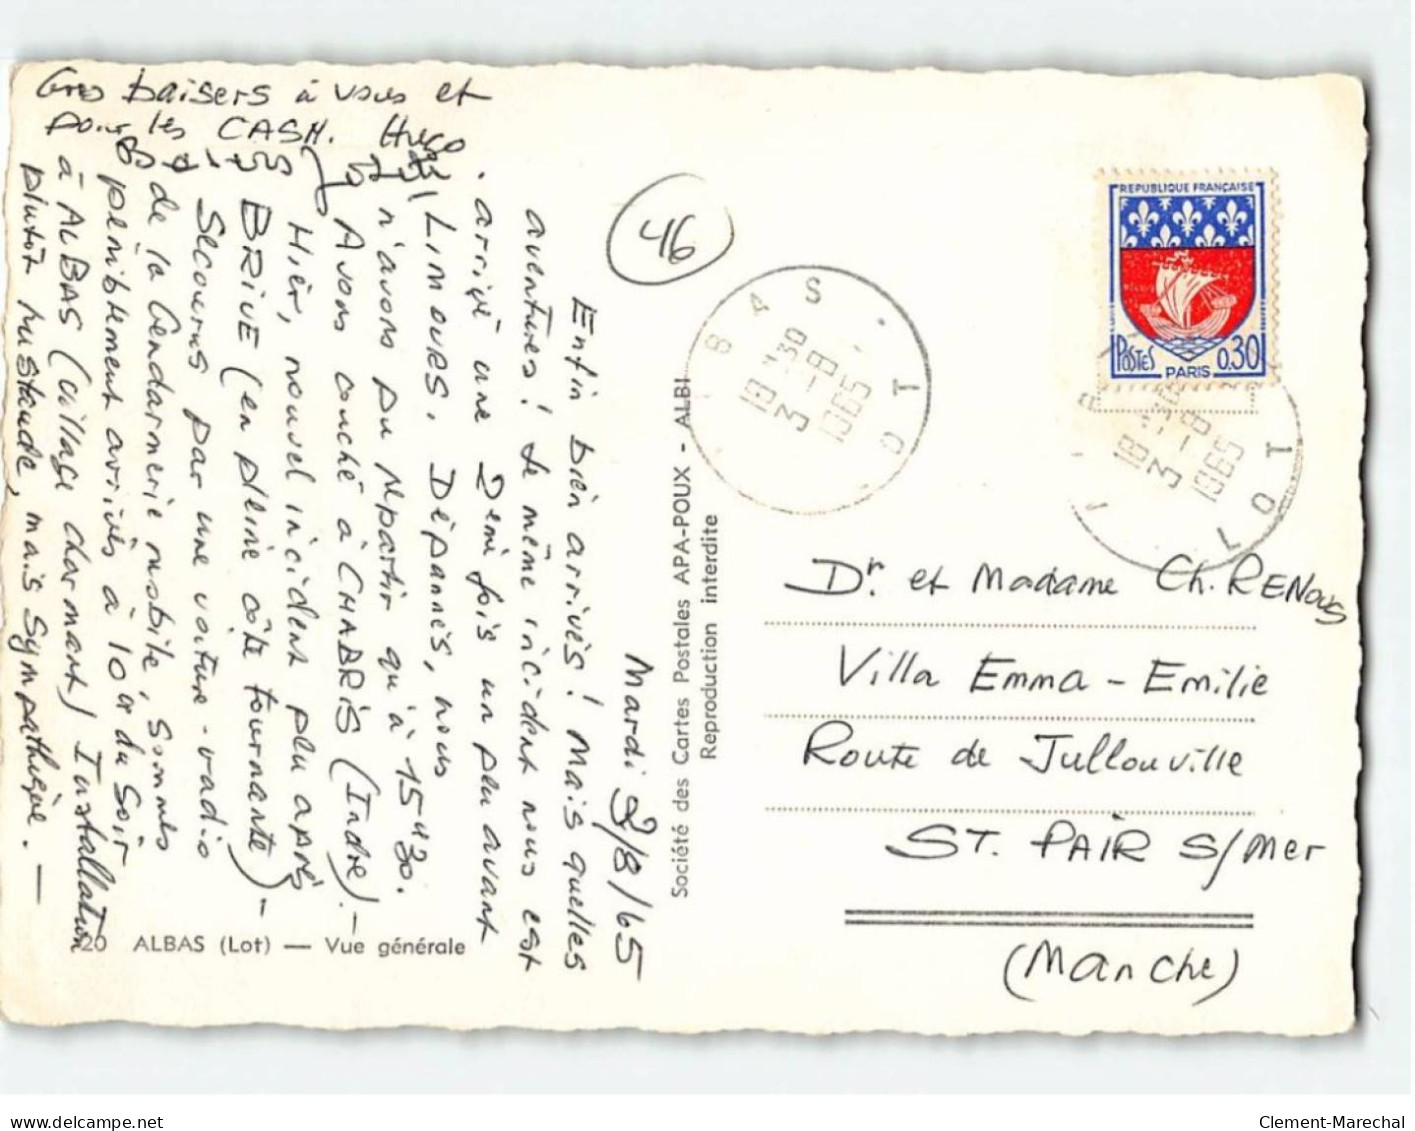 Mardi 3/8/65
Enfin bien arrivés! Mais quelles
aventures! Le même incident nous est
arrivé une Demi fois un peu avant
LIMOURS. Dépannés, nous
n'avons pu repartir qu'à 15h30.
Avons couché à CHABRIS (Indre).-
Hier, nouvel incident plu après
BRIVE (en pleine côte tournante)-
Secourus par une voiture-radio
de la Gendarmerie mobile, sommes
péniblement arrivés à 10h du soir
à ALBAS (village charmant) Installation
plutôt rustaude, mais sympathique. —
Gros baisers à vous et
pour les CASH. Hugo
Baisers
46
20 ALBAS (Lot) — Vue générale
Société des Cartes Postales APA-POUX - ALBI
Reproduction interdite
BAS. LOT
18H30
3-8
1965
REPUBLIQUE FRANÇAISE
POSTES 0,30
PARIS
18H30
3-8
1965
LOT
Dr. et Madame Ch. RENOUS
Villa Emma-Emilie
Route de Jullouville
ST. PAIR S/Mer
(Manche)
Clement-Marechal